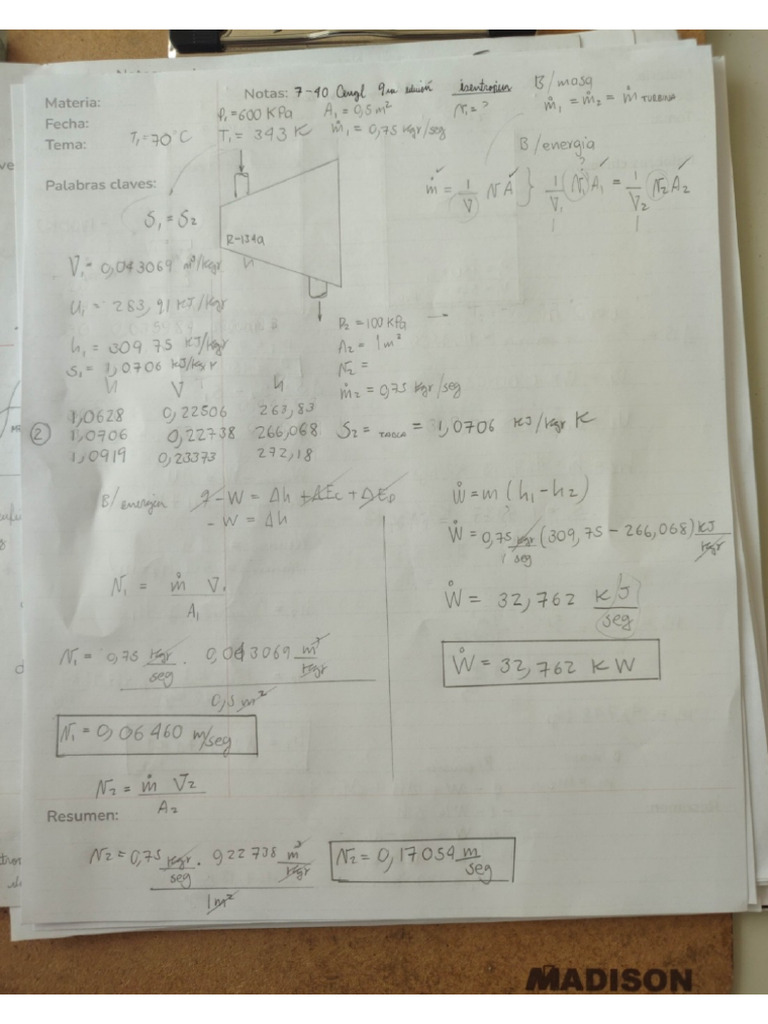 Materia:
Notas: 7-40 Cengl 9na edición isentropica
Fecha:
Tema:
T₁=70°C
P₁=600 KPa A₁=0,5m² N₁=?
T₁= 343 K ṁ₁=0,75 Kgr/seg
B/masa
ṁ₁ = ṁ₂ = ṁ TURBINA
B/energia
ṁ = 1/V NA } 1/V₁ N₁A₁ = 1/V₂ N₂A₂
Palabras claves:
S₁ = S₂
R-134a
V₁= 0,043069 m³/Kgr
U₁ = 283,91 KJ/Kgr
h₁ = 309 75 KJ/Kgr
S₁= 1,0706 KJ/Kgr
P₂ =100 KPa
A₂ = 1m²
N₂ =
ṁ₂ = 0,75 Kgr/seg
V h
1,0628 0,22506 263,83
② 1,0706 0,22738 266,068
1,0919 0,23373 272,18
S₂= TABLA = 1,0706 KJ/Kgr K
B/energia q-W = Δh +ΔEc +ΔEp
-W = Δh
Ẇ = m (h₁-h₂)
Ẇ = 0,75 Kgr/seg (309,75 - 266,068) KJ/Kgr
Ẇ = 32,762 KJ/seg
Ẇ = 32,762 KW
N₁ = ṁ V₁/A₁
N₁= 0,75 Kgr/seg . 0,043069 m³/Kgr
0,5m²
N₁=0,06460 m/seg
N₂ = ṁ V₂/A₂
Resumen:
N₂=0,75 Kgr/seg . 922738 m³/Kgr
1m²
N₂=0,17054 m/seg
MADISON